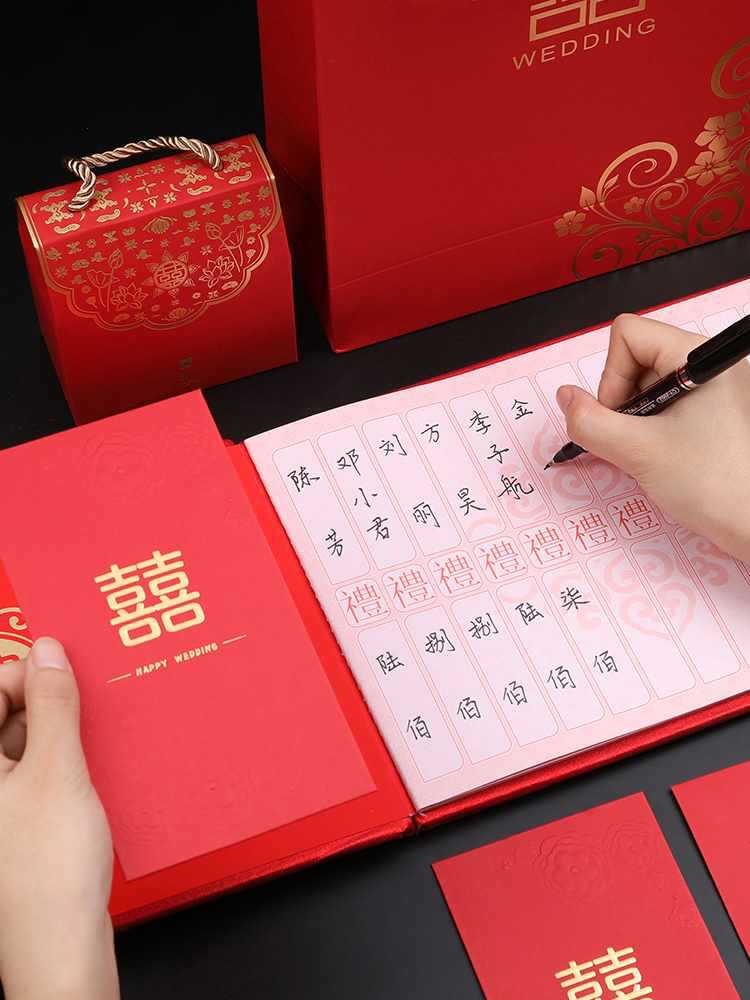 WEDDING
囍
囍
HAPPY WEDDING
陈芳
邓小君
刘丽
方昊
李子航
金
禮 禮 禮 禮 禮 禮 禮
陆佰
捌佰
捌佰
陆佰
柒佰
囍